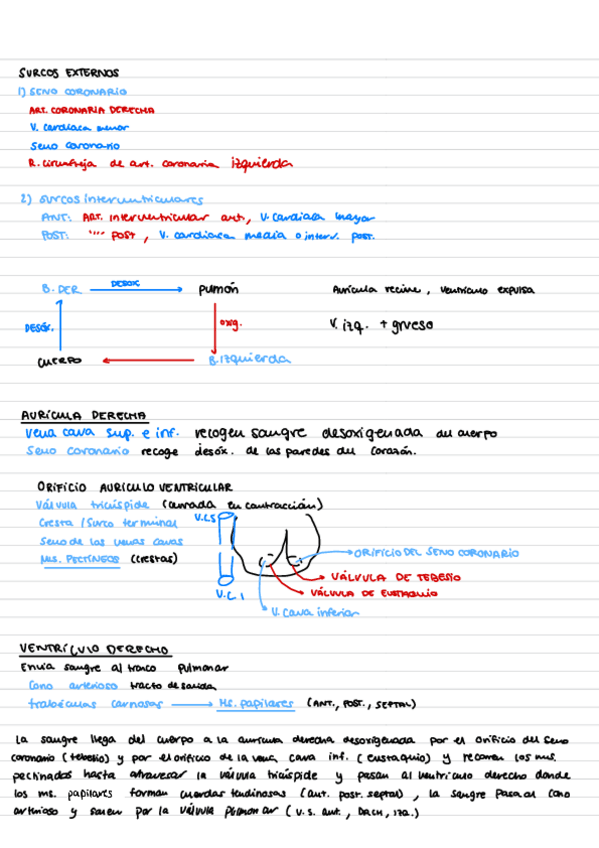 SURCOS EXTERNOS
1) SENO CORONARIO
ART. CORONARIA DERECHA
V. cardiaca menor
Seno coronario
R. circunfleja de art. coronaria izquierda
2) surcos interventriculares
ANT: Art. interventricular ant., V. cardiaca mayor
POST: """ post, V. cardiaca media o interv. post.
B. DER DESOX Pulmón Aurícula recibe, ventrículo expulsa
DESÓX. oxig. V. izq. + grueso
CUERPO B. Izquierda
AURÍCULA DERECHA
Vena cava sup. e inf. recogen sangre desoxigenada del cuerpo
Seno coronario recoge desóx. de las paredes del corazón.
ORIFICIO AURICULO VENTRICULAR
Válvula tricúspide (cerrada en contracción)
Cresta / Surco terminal V.C.S
Seno de las venas cavas
Ms. PECTÍNEOS (crestas) ORIFICIO DEL SENO CORONARIO
VÁLVULA DE TEBESIO
V.C.I VÁLVULA DE EUSTAQUIO
V. Cava inferior
VENTRÍCULO DERECHO
Envía sangre al tronco pulmonar
Cono arterioso tracto de salida
trabéculas carnosas Ms. papilares (ANT., POST., SEPTAL)
La sangre llega del cuerpo a la aurícula derecha desoxigenada por el orificio del seno
coronario (tebesio) y por el orificio de la vena cava inf. (eustaquio) y recorren los ms.
pectinados hasta atravesar la válvula tricúspide y pasan al ventrículo derecho donde
los ms. papilares forman cuerdas tendinosas (ant. post. septal), la sangre pasa al cono
arterioso y salen por la válvula pulmonar (v.s. ant., DRCH, izq.)